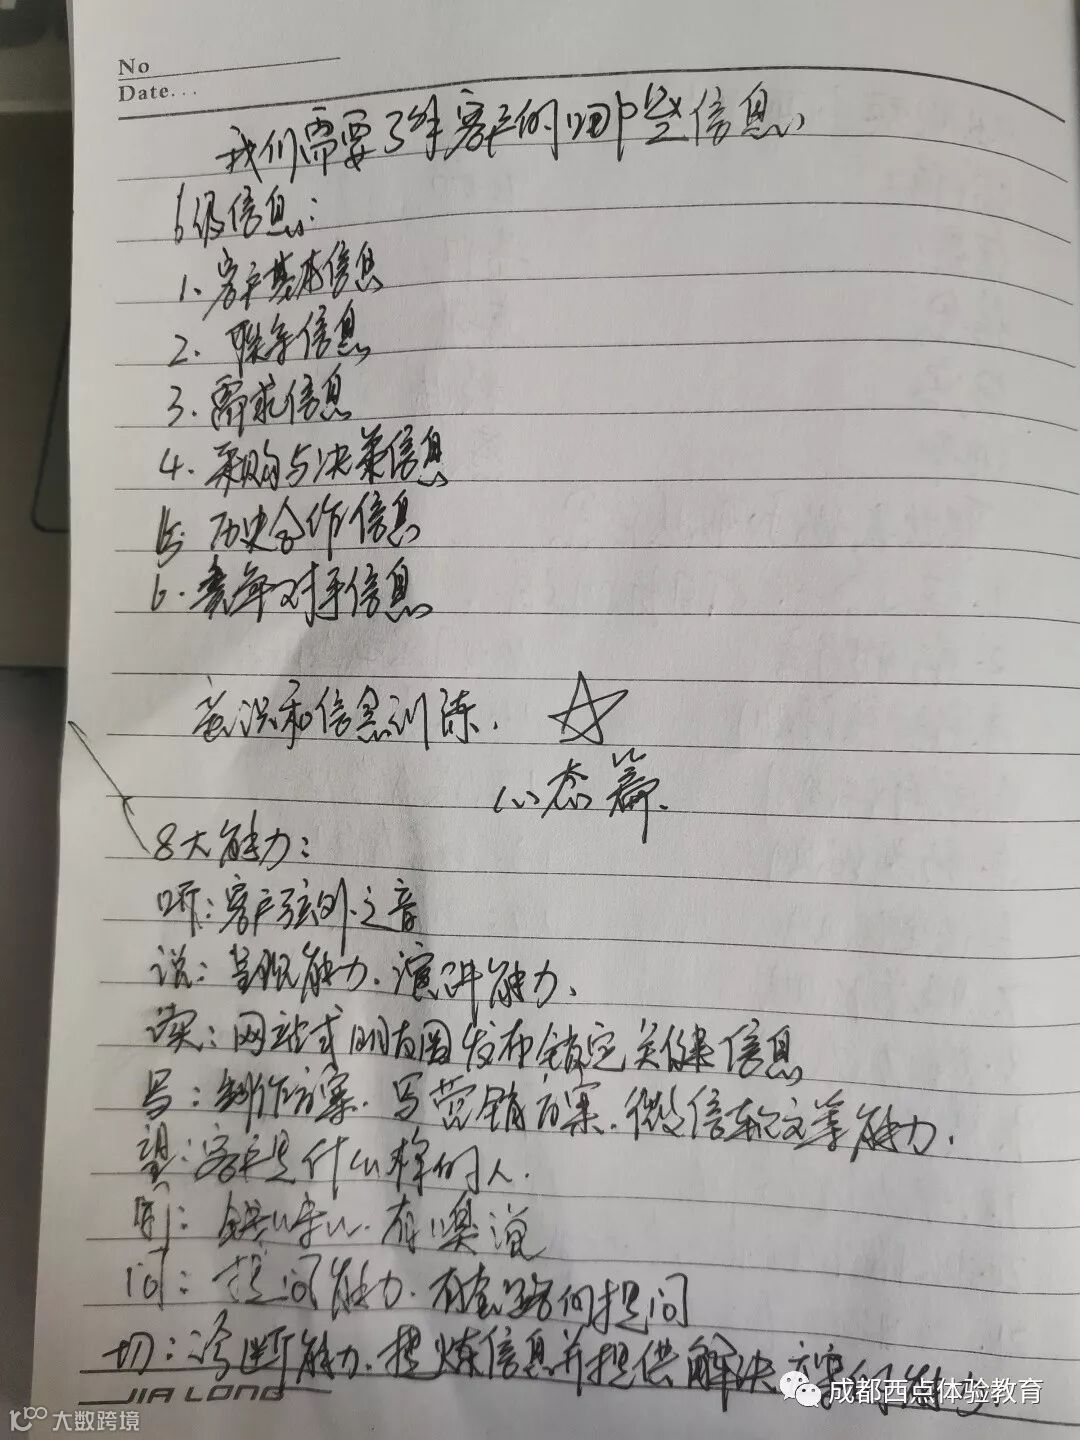 No
Date...
我们需要了解客户的哪些信息、
6级信息:
1、客户基本信息
2、联系信息
3、需求信息
4、采购与决策信息
5、历史合作信息
6、竞争对手信息
意识和信息训练、
心态篇、
8大能力:
听:客户弦外之音
说:呈现能力、演讲能力、
读:网站式朋友圈发布锁定关键信息
写:制作方案、写营销方案、微信软文等能力、
望:客户是什么样的人.
闻: 有嗅觉
问:提问能力、有套路的提问
切:诊断能力、提炼信息并提供解决方案的能力
JIA LONG
成都西点体验教育
大数跨境